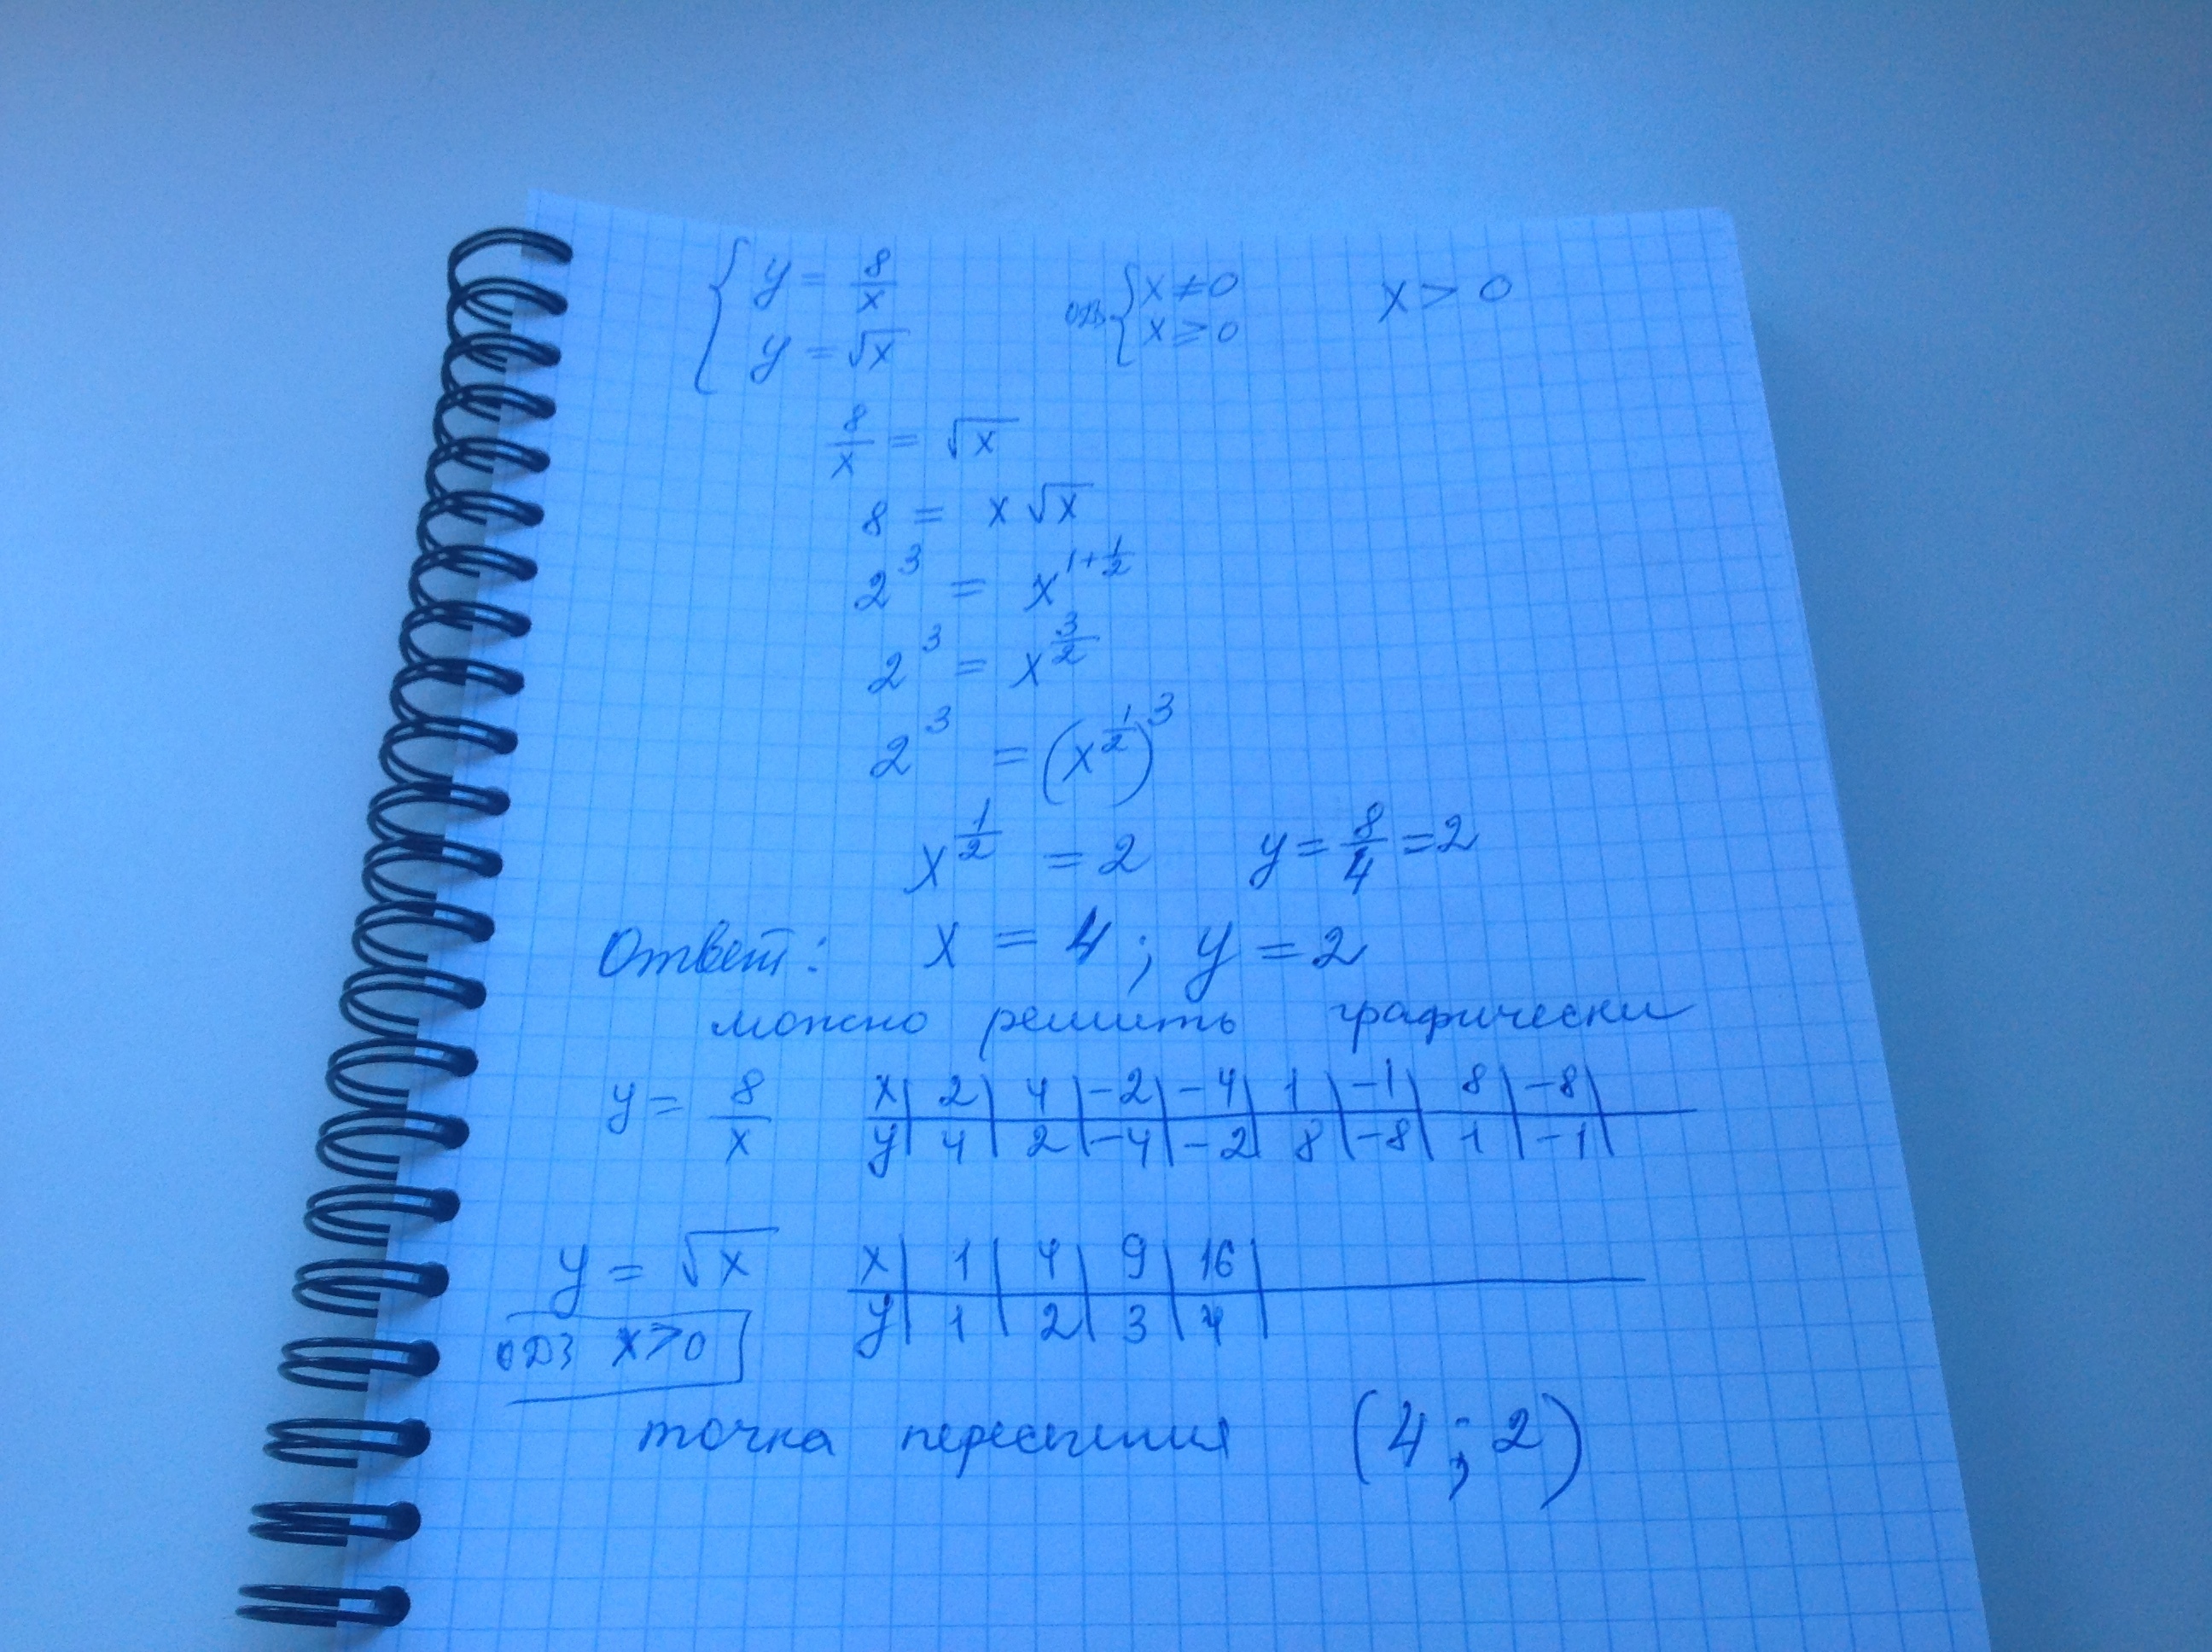 { y = 8/x   ОДЗ { x ≠ 0   x > 0
{ y = √x   { x ≥ 0
8/x = √x
8 = x √x
2^3 = x^(1+1/2)
2^3 = x^(3/2)
2^3 = (x^(1/2))^3
x^(1/2) = 2   y = 8/4 = 2
Ответ: x = 4 ; y = 2
можно решить графически
y = 8/x   x | 2 | 4 | -2 | -4 | 1 | -1 | 8 | -8 |
y | 4 | 2 | -4 | -2 | 8 | -8 | 1 | -1 |
y = √x   x | 1 | 4 | 9 | 16 |
y | 1 | 2 | 3 | 4 |
ОДЗ x > 0
точка (4 ; 2)